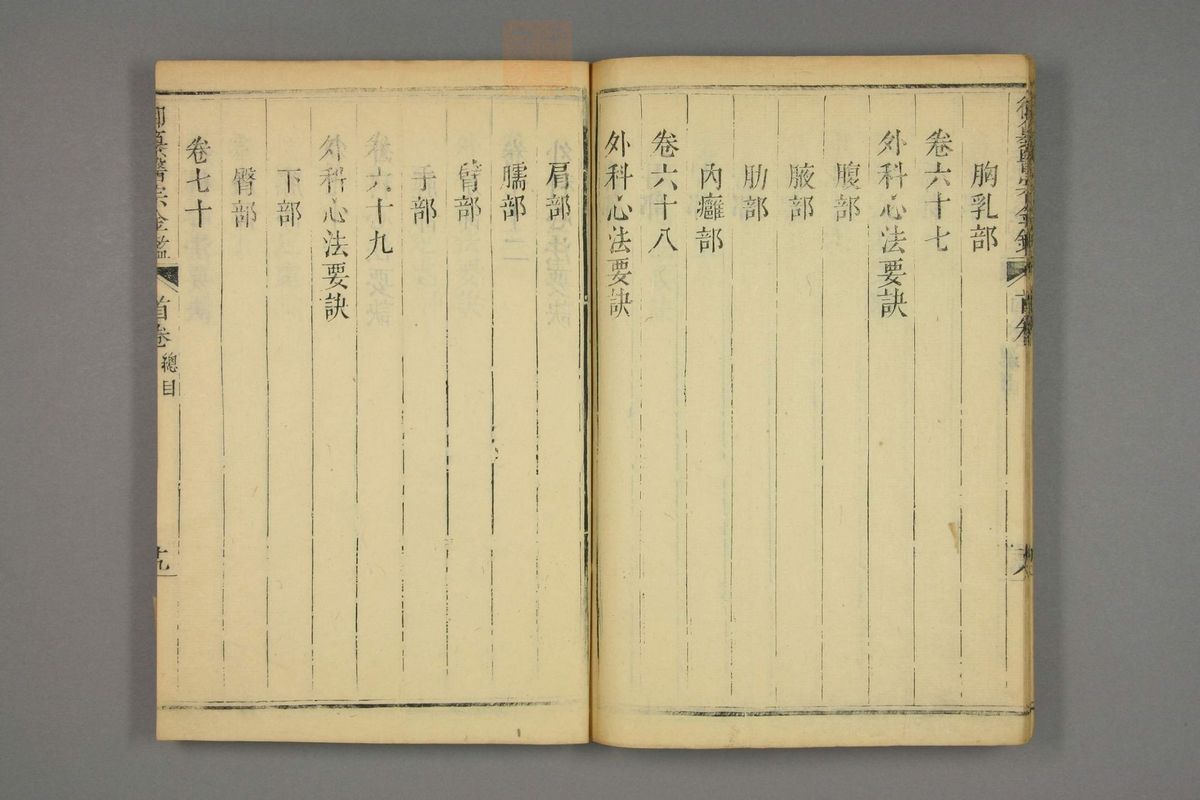 胸乳部
卷六十七
外科心法要訣
腹部
腋部
肋部
內癰部
卷六十八
外科心法要訣
肩部
臑部
臂部
手部
卷六十九
外科心法要訣
下部
臀部
卷七十
御纂醫宗金鑑
首卷
總目
十九